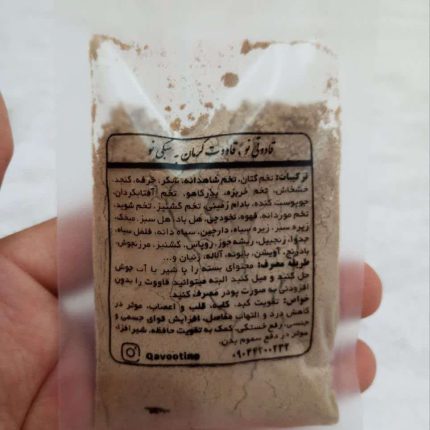 قاووتی نو ؛ قاووت کرمان به سبکی نو
ترکیبات: تخم کتان، تخم شاهدانه، شکر، خرفه، کنجد
خشخاش، تخم خربزه، بذرکاهو، تخم آفتابگردان،
جو پوست کنده، بادام زمینی، تخم گشنیز، تخم شوید،
تخم موردانه، قهوه، نخودچی، هل باد، هل سبز، میخک،
زیره سبز، زیره سیاه، دارچین، سیاه دانه، فلفل سیاه،
جدوا، زنجبیل، ریشه جوز، روپاس، گشنیز، مرزنجوش،
بادرنج، آویشن، بابونه، آلاله، زنیان و...
طریقه مصرف: محتوای بسته را با شیر یا آب جوش
حل کنید و میل کنید البته میتوانید قاووت را بدون
افزودنی به صورت پودر مصرف کنید.
خواص: تقویت کبد، کلیه، قلب و اعصاب، موثر در
کاهش درد و التهاب مفاصل، افزایش قوای جسمی و
جنسی، رفع خستگی، کمک به تقویت حافظه، شیرافزا،
موثر در دفع سموم بدن.
Qavootino